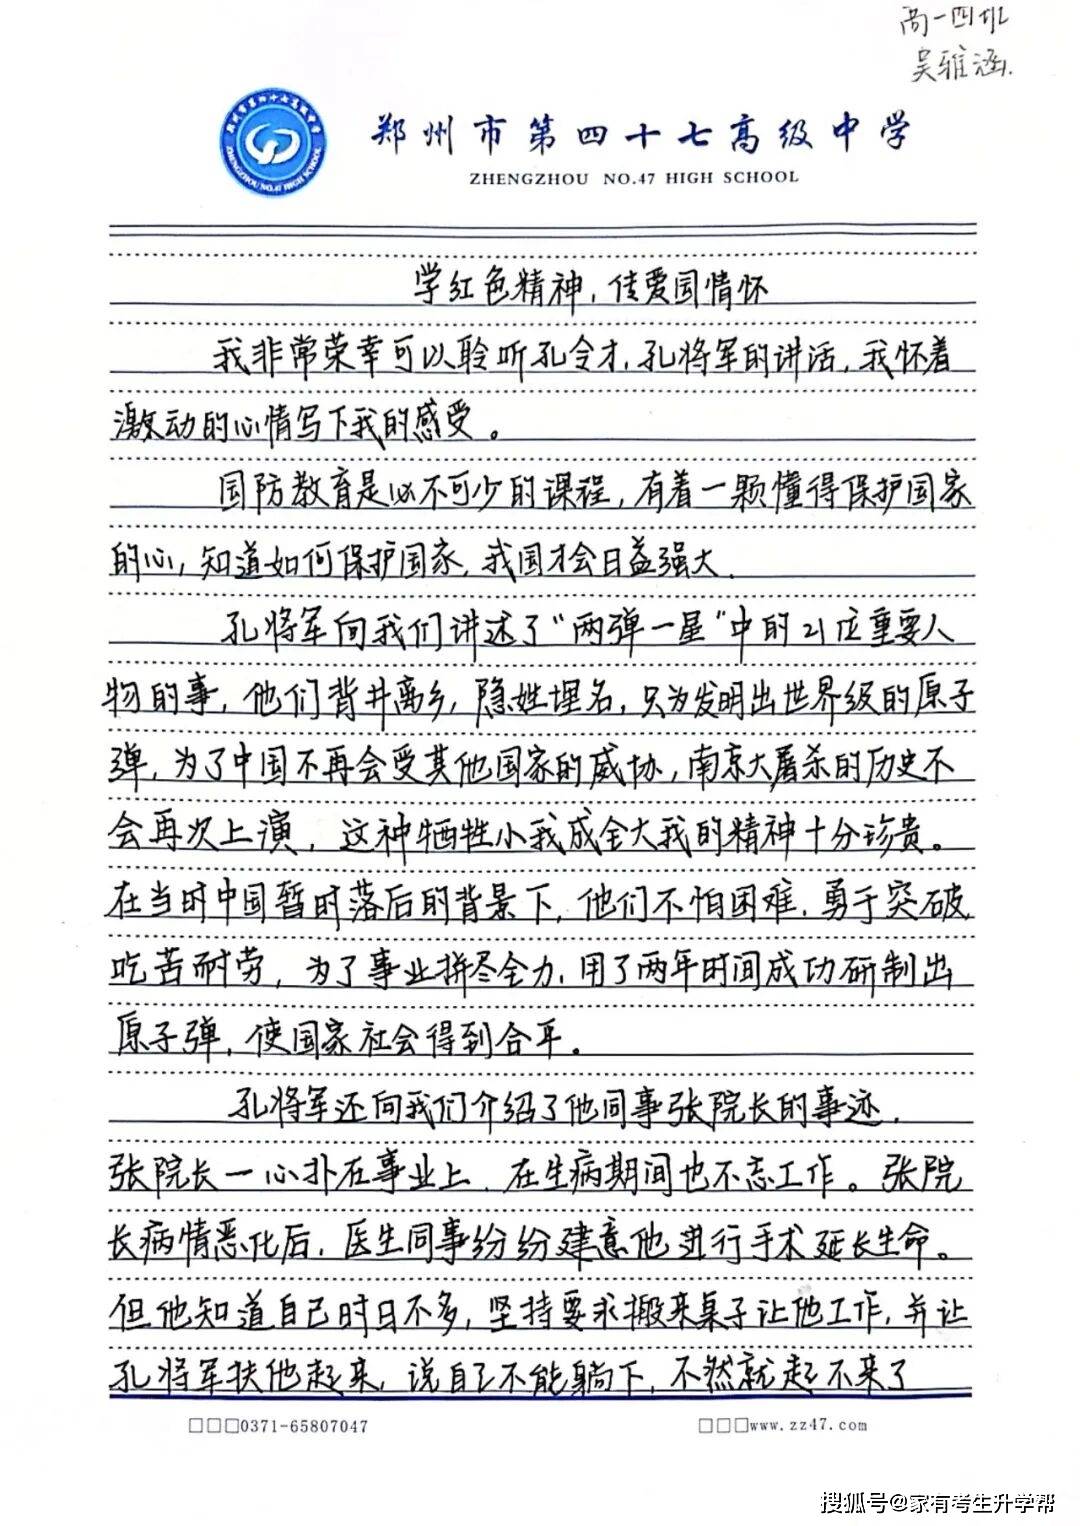 高一四班
吴雅涵.
郑州市第四十七高级中学
郑州市第四十七高级中学
ZHENGZHOU NO.47 HIGH SCHOOL
ZHENGZHOU NO.47 HIGH SCHOOL
学红色精神，传爱国情怀
我非常荣幸可以聆听孔令才，孔将军的讲话，我怀着
激动的心情写下我的感受。
国防教育是必不可少的课程，有着一颗懂得保护国家
的心，知道如何保护国家，我国才会日益强大.
孔将军向我们讲述了“两弹一星”中的21位重要人
物的事，他们背井离乡，隐姓埋名，只为发明出世界级的原子
弹，为了中国不再会受其他国家的威协，南京大屠杀的历史不
会再次上演，这种牺牲小我成全大我的精神十分珍贵。
在当时中国暂时落后的背景下，他们不怕困难，勇于突破，
吃苦耐劳，为了事业拼尽全力，用了两年时间成功研制出
原子弹，使国家社会得到合平。
孔将军还向我们介绍了他同事张院长的事迹，
张院长一心扑在事业上，在生病期间也不忘工作。张院
长病情恶化后，医生同事纷纷建意他进行手术延长生命。
但他知道自己时日不多，坚持要求搬来桌子让他工作，并让
孔将军扶他起来，说自己不能躺下，不然就起不来了
□□□0371-65807047
□□□www.zz47.com
搜狐号@家有考生升学帮